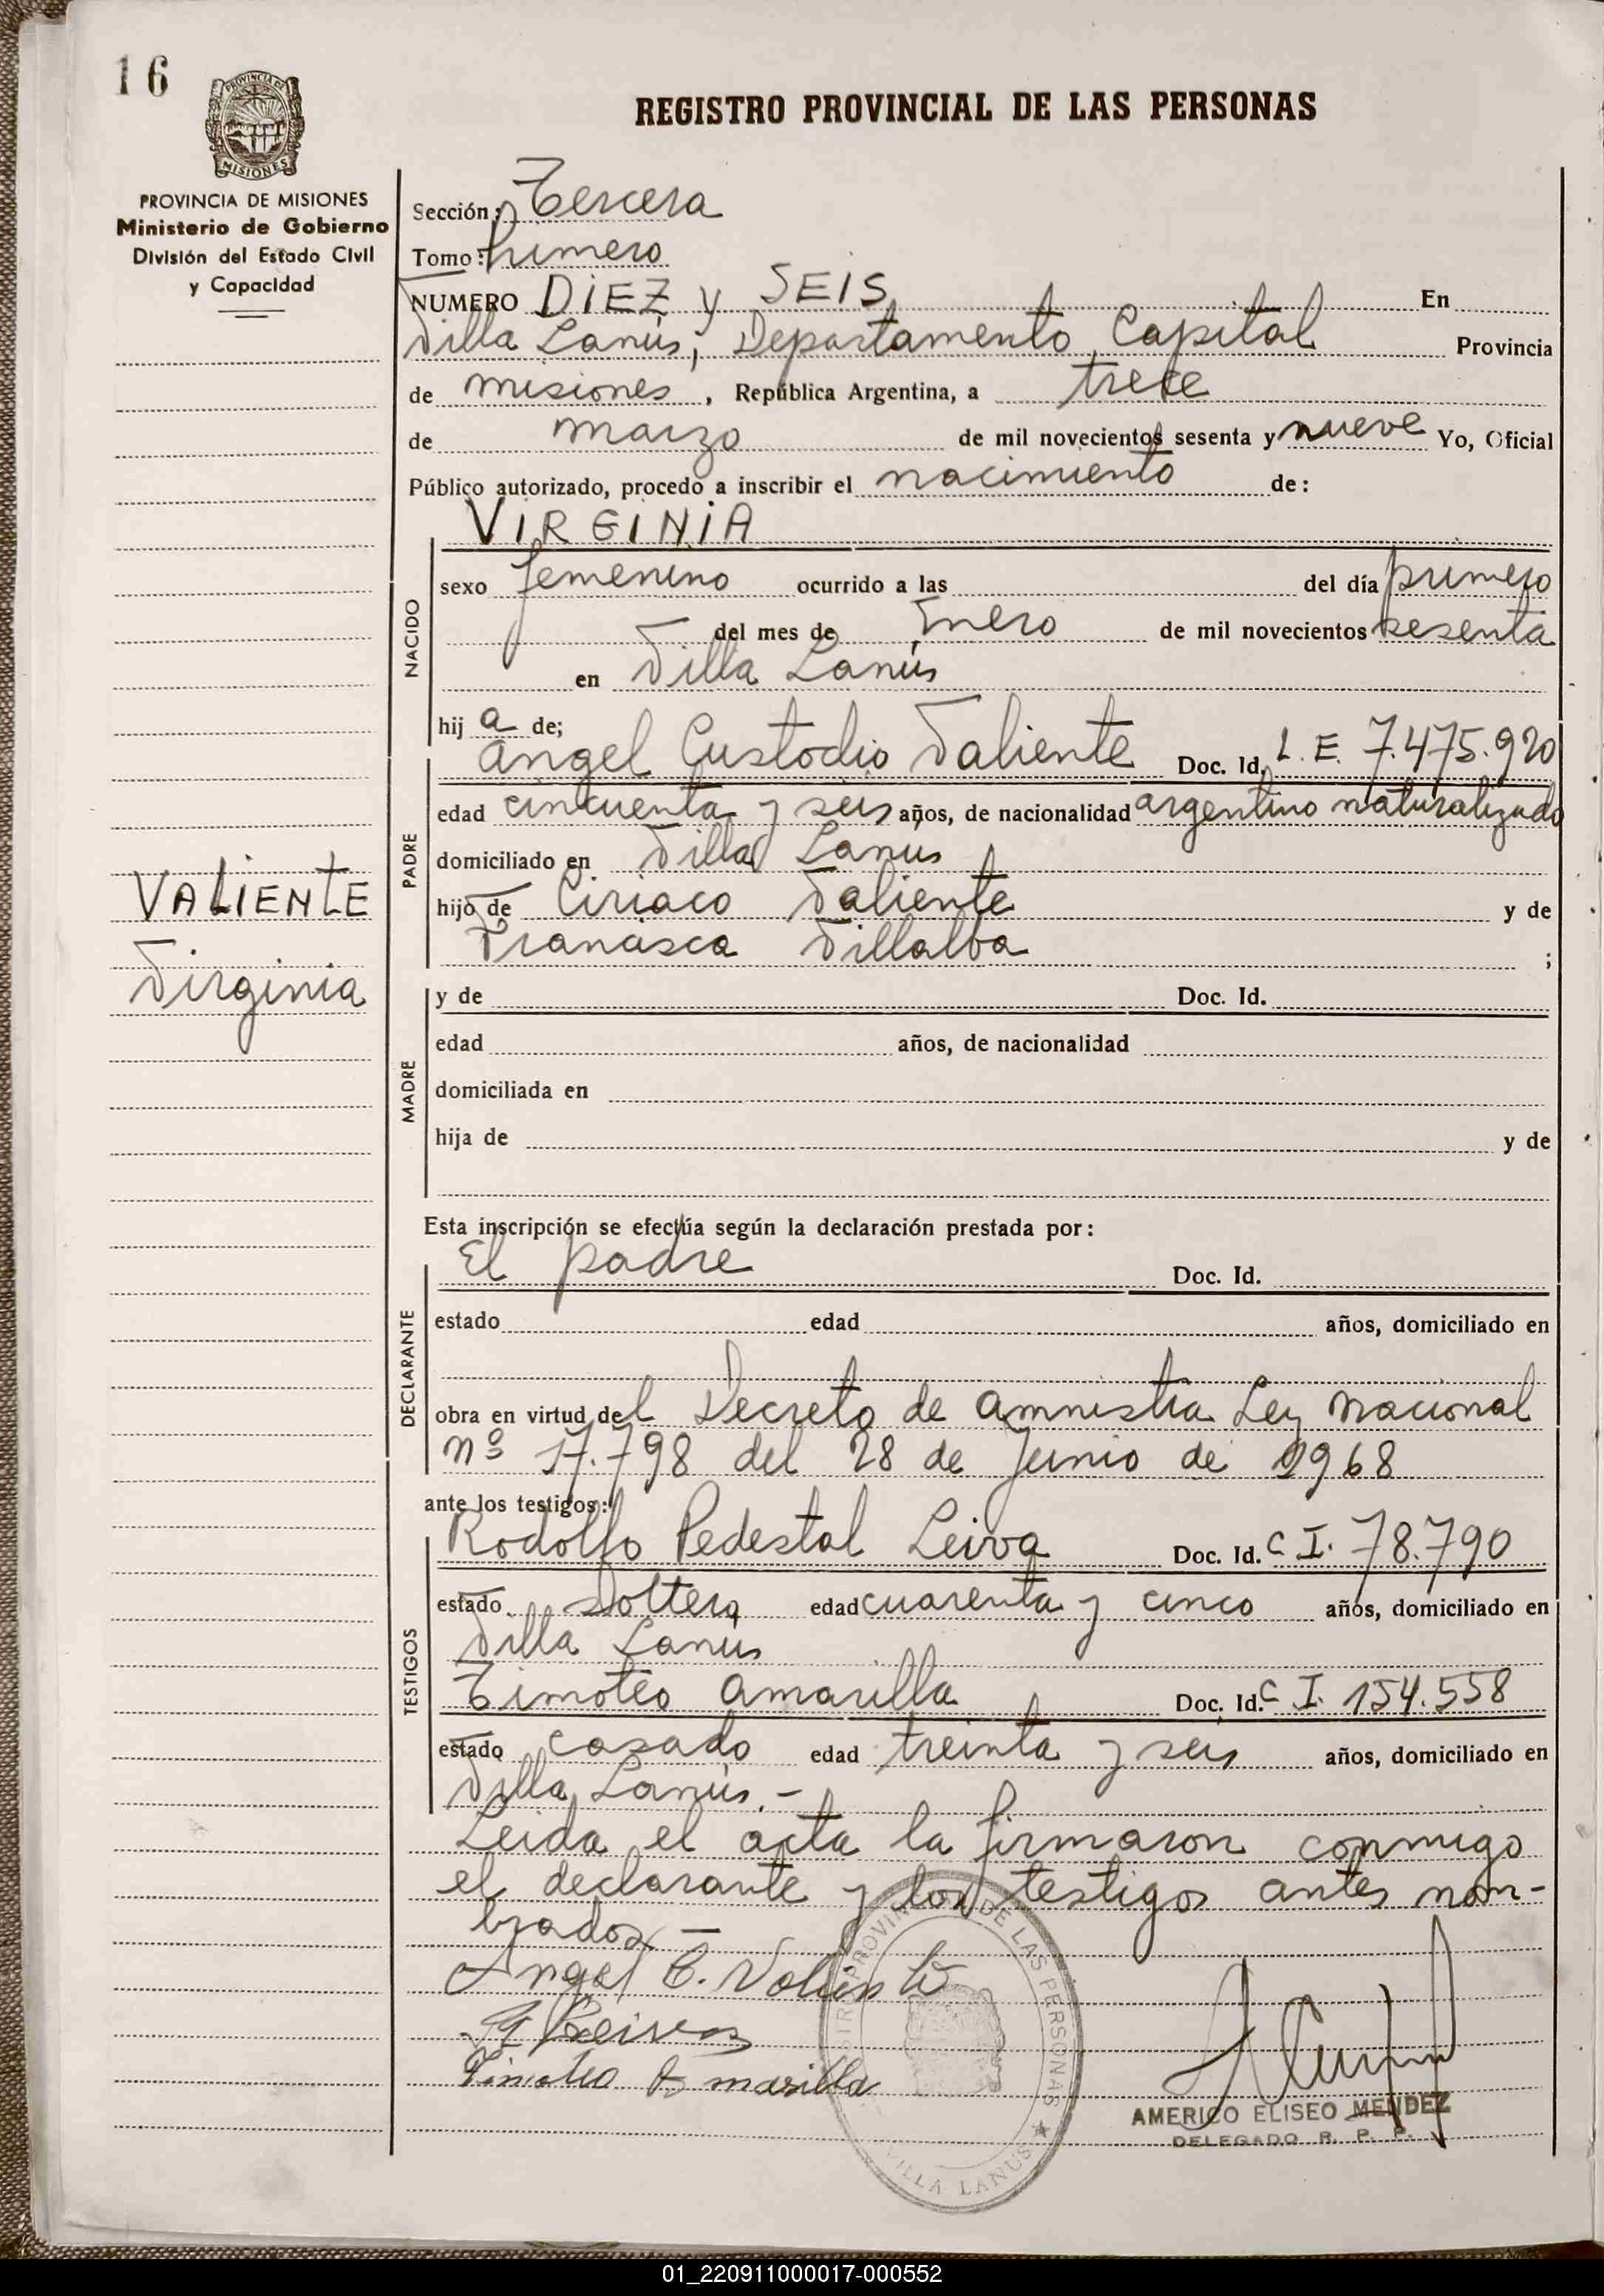 16
PROVINCIA DE
MISIONES
REGISTRO PROVINCIAL DE LAS PERSONAS
PROVINCIA DE MISIONES
Ministerio de Gobierno
División del Estado Civil
y Capacidad
Sección: Tercera
Tomo: Primero
NUMERO DIEZ y SEIS En
Villa Lanús, Departamento Capital Provincia
de misiones, República Argentina, a trece
de marzo de mil novecientos sesenta y nueve Yo, Oficial
Público autorizado, procedo a inscribir el nacimiento de:
VIRGINIA
NACIDO
sexo femenino ocurrido a las del día primero
del mes de Enero de mil novecientos sesenta
en Villa Lanús
hij a de;
PADRE
Angel Custodio Valiente Doc. Id. L. E. 7.475.920
edad cincuenta y seis años, de nacionalidad argentino naturalizado
domiciliado en Villa Lanus
hijo de Ciriaco Valiente y de
Francisca Villalba ;
VALIENTE
Virginia
MADRE
y de Doc. Id.
edad años, de nacionalidad
domiciliada en
hija de y de
Esta inscripción se efectúa según la declaración prestada por:
DECLARANTE
El padre Doc. Id.
estado edad años, domiciliado en
obra en virtud del Decreto de amnistia Ley Nacional
nº 17.798 del 28 de Junio de 1968
ante los testigos:
TESTIGOS
Rodolfo Pedestal Leiva Doc. Id. C I. 78.790
estado soltero edad cuarenta y cinco años, domiciliado en
Villa Lanús
Timoteo Amarilla Doc. Id. C I. 154.558
estado casado edad treinta y seis años, domiciliado en
Villa Lanús.-
Leida el acta la firmaron conmigo
el declarante y los testigos antes nom-
brados -
Angel C. Valiente
Leiva
Timoteo Amarilla
PROVINCIAL DE LAS PERSONAS
VILLA LANUS
AMERICO ELISEO MENDEZ
DELEGADO R. P. P.
01_220911000017-000552